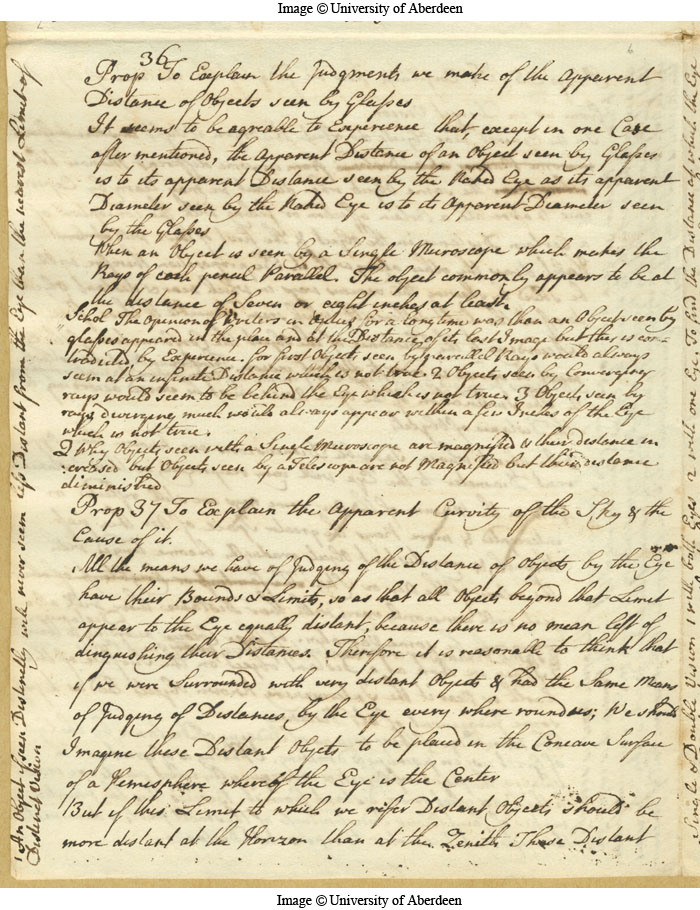 Image © University of Aberdeen
36
Prop To Explain the Judgments we make of the Apparent
Distance of Objects seen by Glasses
It seems to be agreable to Experience that, except in one Case
after mentioned, the Apparent Distence of an Object seen by Glasses
is to its apparent Distance seen by the Naked Eye as its apparent
Diameter seen by the Naked Eye is to its Apparent Diameter seen
by the Glasses
When an Object is seen by a Single Microscope which makes the
Rays of each pencil Parallel. The object commonly appears to be at
the distance of Seven or eight inches at least.
Schol The Opinion of Writers in for a long time was than an Object seen by
glasses appeared in the place and at the Distance of its last Image but this is con¬
tradicted by Experience. for first Objects seen by parallel Rays would always
seem at an infinite Distance which is not true 2 Objects seen by Converging
rays would seem to be behind the Eye which is not true. 3 Objects seen by
rays diverging much would always appear within a few Inches of the Eye
which is not true.
2 Why Objects seen with a Single Microscope are magnified & their distance in
:creased but Objects seen by a Telescope are not Magnified but their distance
diminished
Prop 37 To Explain the Apparent Curvity of the Sky & the
Cause of it.
All the means we have of Judging of the Distance of Objects by the Eye
have their Bounds & Limits, so as that all Objects beyond that Limit
appear to the Eye equally distant, because there is no mean left of
dinguishing their Distances. Therefore it is reasonable to think that
if we were Surrounded with very distant Objects & had the Same Means
of Judging of Distances, by the Eye every where round us; We should
Imagine these Distant Objets to be placed in the Concave Surface
of a Hemisphere whereoff the Eye is the Center
But if this Limit to which we refer Distant Objects should be
more distant at the Horizon than at the Zenith These Distant
1 An Object if seen Distinctly will never seem less Distant from the Eye than the nearest Limit of
Distinct Vision
Single & Double Vision 1 with both Eyes 2 with one Eye To find the Distance of which the Eye
Image © University of Aberdeen